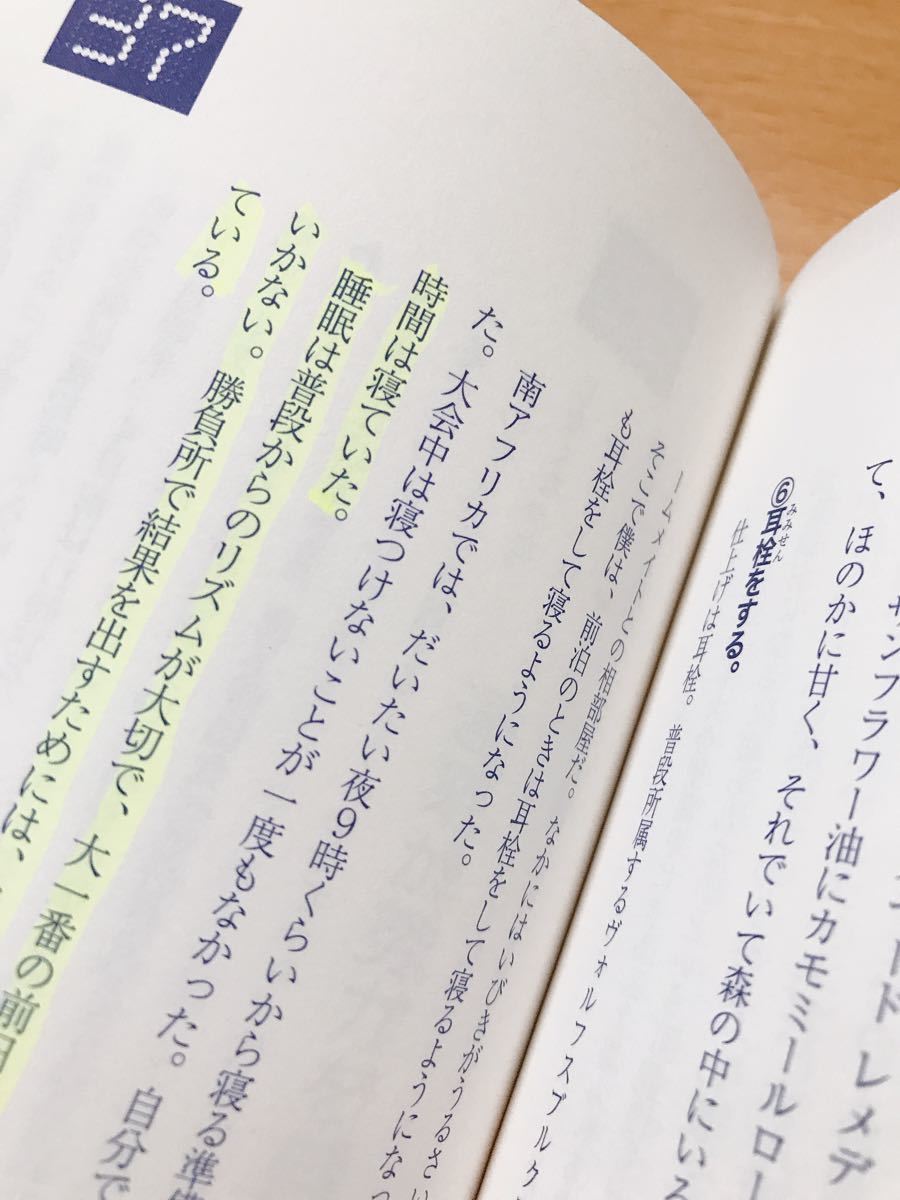 ードレメデ
サンフラワー油にカモミールロー
て、ほのかに甘く、それでいて森の中にいる
みみせん
⑥耳栓をする。
仕上げは耳栓。普段所属するヴォルフスブルク
ームメイトとの相部屋だ。なかにはいびきがうるさい
そこで僕は、前泊のときは耳栓をして寝るようになっ
も耳栓をして寝るようになった。
南アフリカでは、だいたい夜9時くらいから寝る準備
た。大会中は寝つけないことが一度もなかった。自分で
時間は寝ていた。
睡眠は普段からのリズムが大切で、大一番の前日
いかない。勝負所で結果を出すためには、
ている。
37